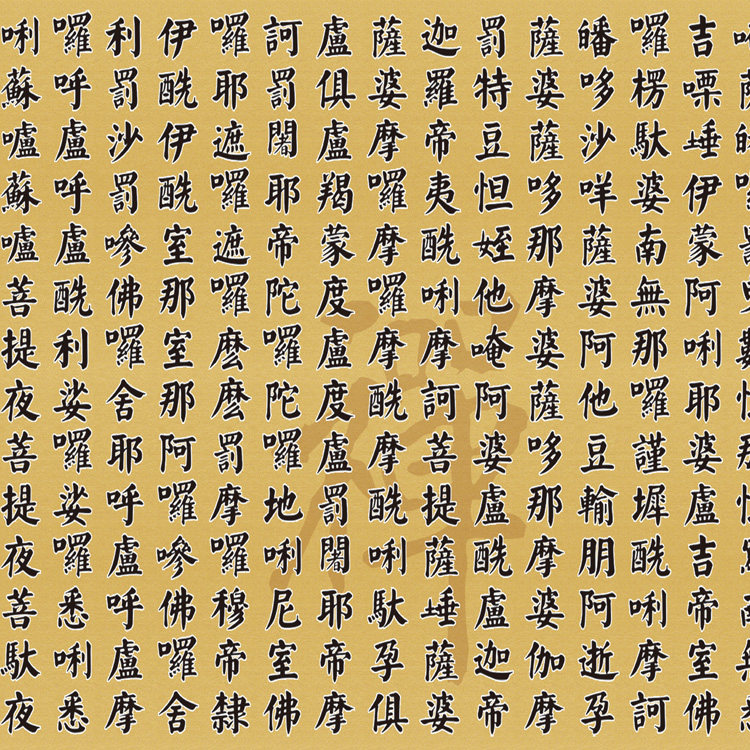 吉㗚埵伊蒙阿唎耶婆盧吉帝室佛
囉楞馱婆南無那囉謹墀酰唎摩訶
皤哆沙咩薩婆阿他豆輸朋阿逝孕
薩婆薩哆那摩婆薩哆那摩婆伽摩
罰特豆怛姪他唵阿婆盧酰盧迦帝
迦羅帝夷酰唎摩訶菩提薩埵薩婆
薩婆摩囉摩囉摩酰摩酰唎馱孕俱
盧俱盧羯蒙度盧度盧罰闍耶帝摩
訶罰闍耶帝陀囉陀囉地唎尼室佛
囉耶遮囉遮囉麼麼罰摩囉穆帝隸
伊酰伊酰室那室那阿囉嘇佛囉舍
利罰沙罰嘇佛囉舍耶呼盧呼盧摩
囉呼盧呼盧酰利娑囉娑囉悉唎悉
唎蘇嚧蘇嚧菩提夜菩提夜菩馱夜
禪